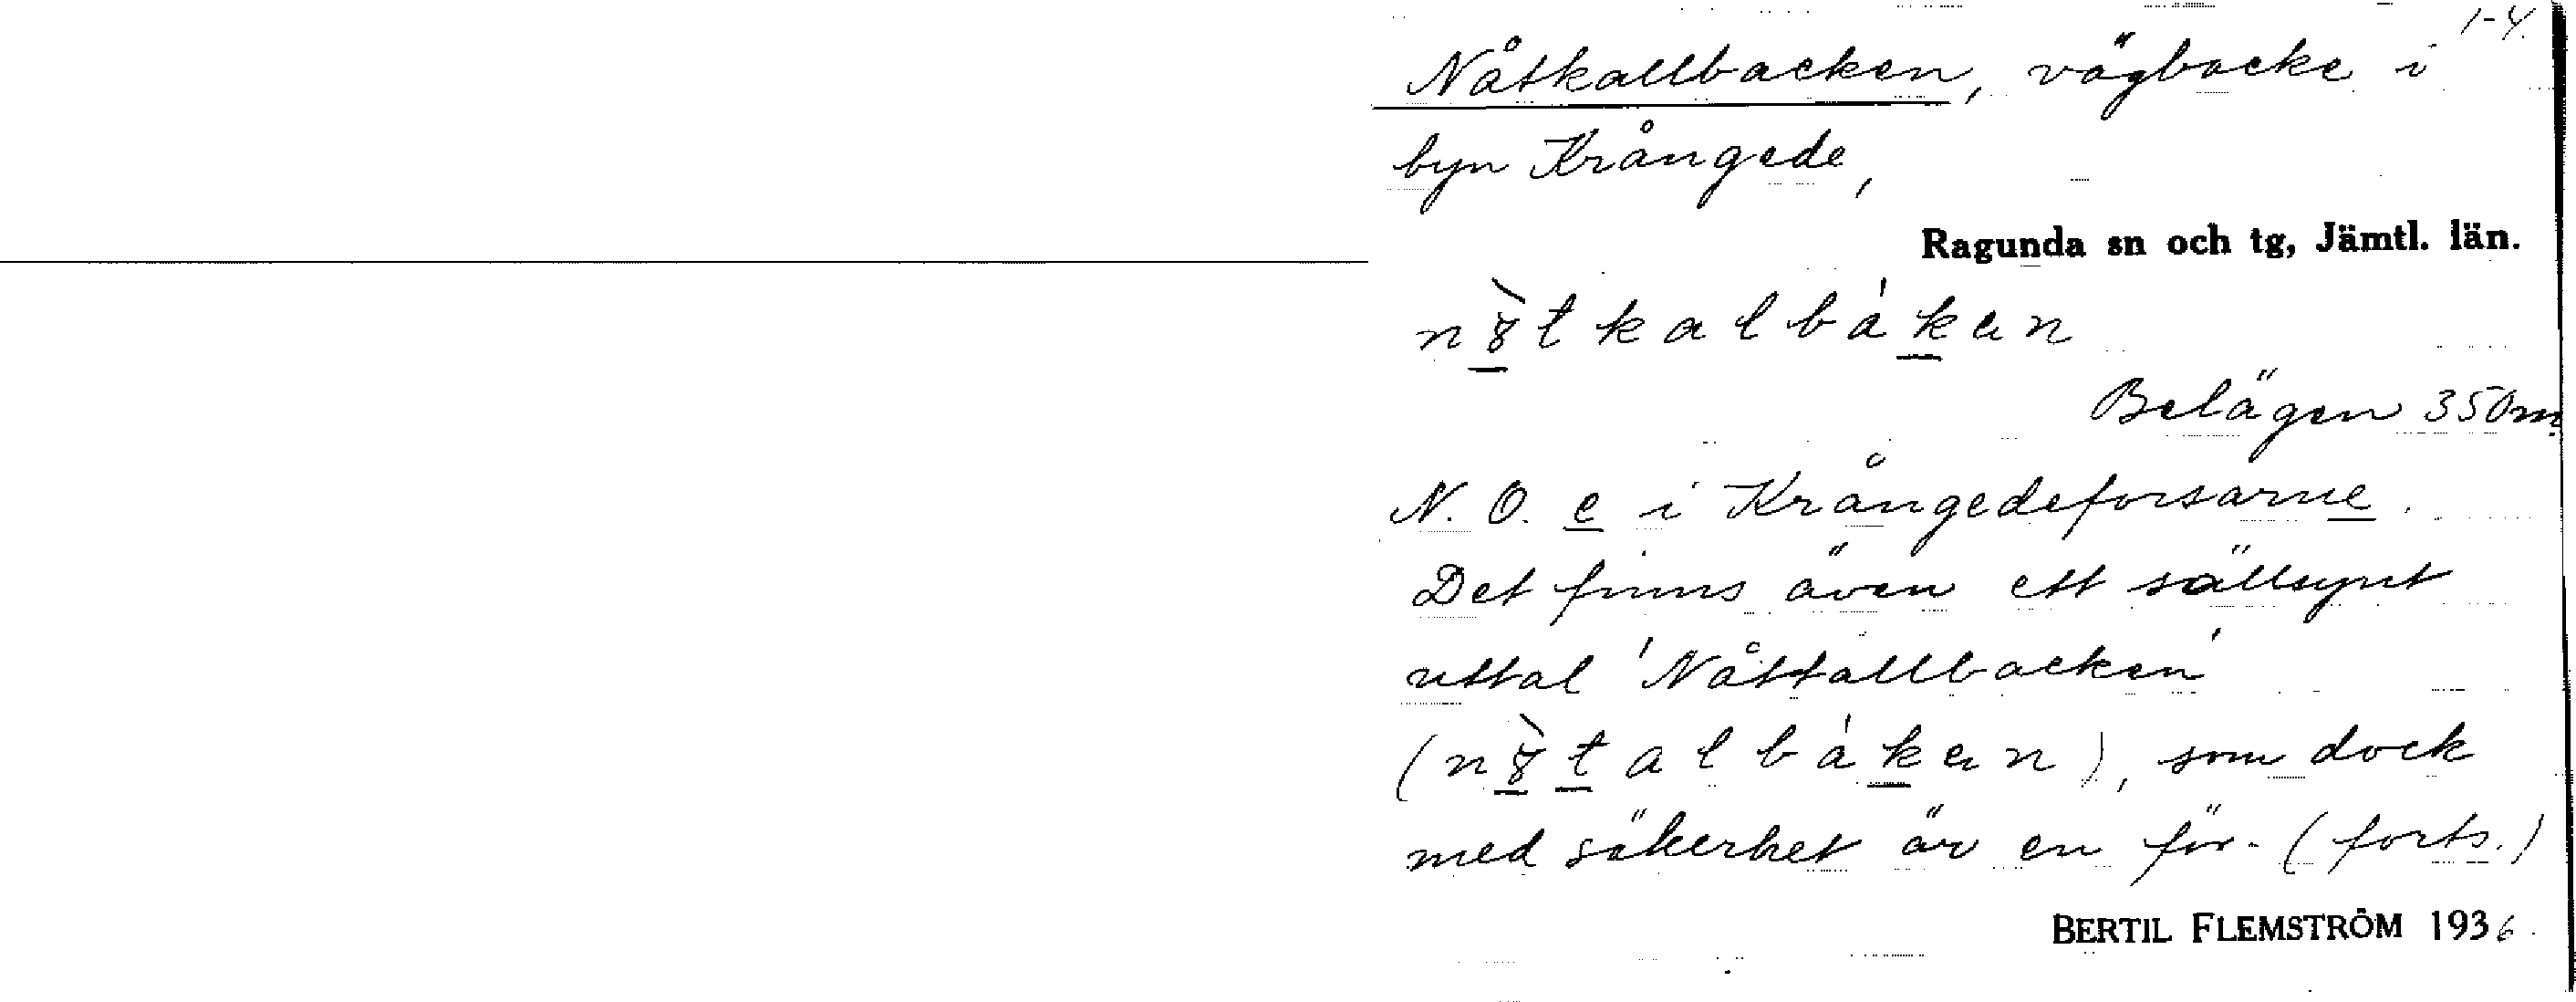 1-4.
Nåtkallbacken, vägbacke i
byn Krångede,
Ragunda sn och tg, Jämtl. län.
Belägen 350 m
N. O. e i Krångedeforsarne.
Det finns även ett sällsynt
uttal 'Nåttallbacken'
som dock
med säkerhet är en för- (forts.)
BERTIL FLEMSTRÖM 1936.